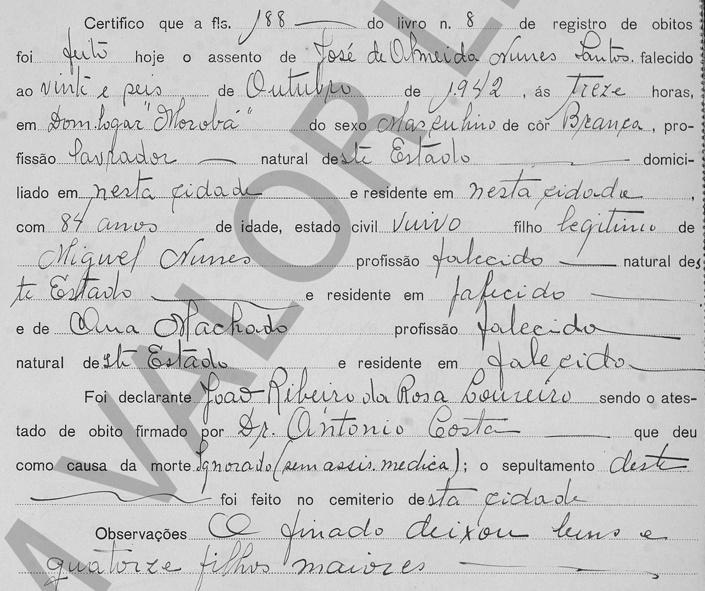 Certifico que a fls. 188 do livro n. 8 de registro de obitos
foi feito hoje o assento de José de Almeida Nunes Santos. falecido
ao vinte e seis de Outubro de 1942, ás treze horas,
em Dom. logar "Morobá" do sexo Masculino de côr Branca, pro-
fissão Lavrador natural deste Estado domici-
liado em nesta cidade e residente em nesta cidade,
com 84 anos de idade, estado civil viuvo filho legitimo de
Miguel Nunes profissão falecido natural des
te Estado e residente em falecido
e de Ana Machado profissão falecida
natural deste Estado e residente em falecida
Foi declarante João Ribeiro da Rosa Loureiro sendo o ates-
tado de obito firmado por Dr. Antonio Costa que deu
como causa da morte Ignorado (sem assis. medica); o sepultamento deste
foi feito no cemiterio desta cidade
Observações O finado deixou bens e
quatorze filhos maiores
A VALOR L